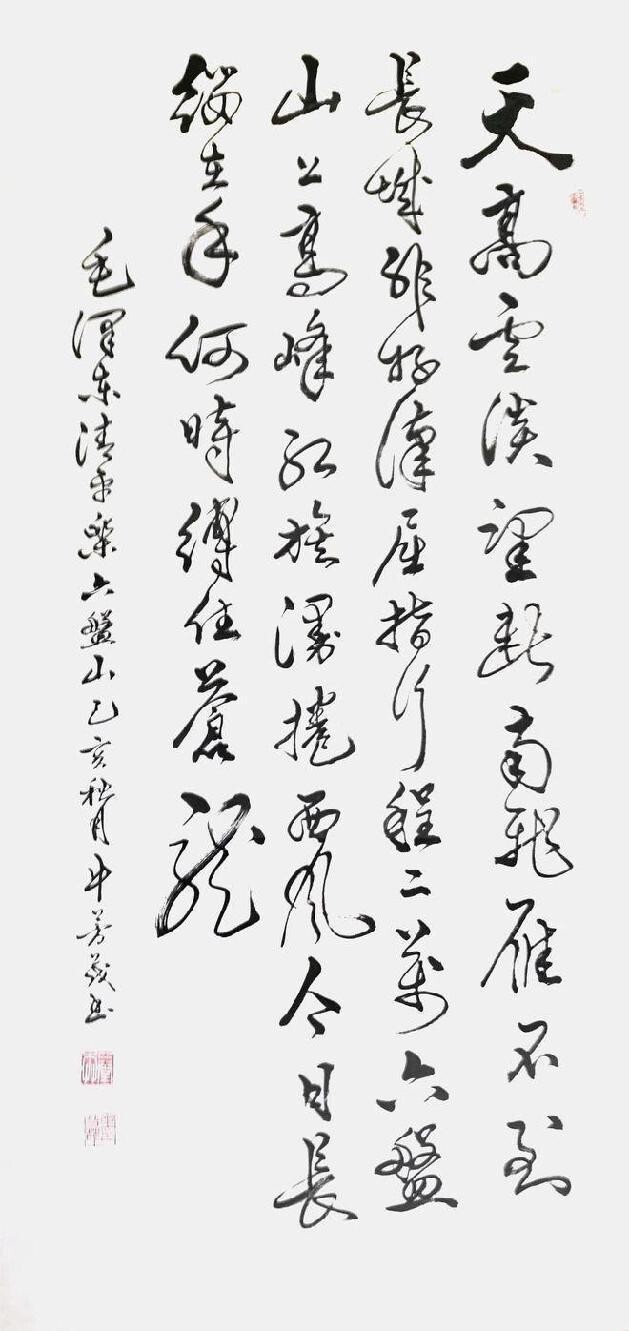 天高雲淡望斷南飛雁不到
長城非好漢屈指行程二萬六盤
山上高峰紅旗漫捲西風今日長
纓在手何時縛住蒼龍
毛澤東清平樂六盤山己亥秋月牛芳書